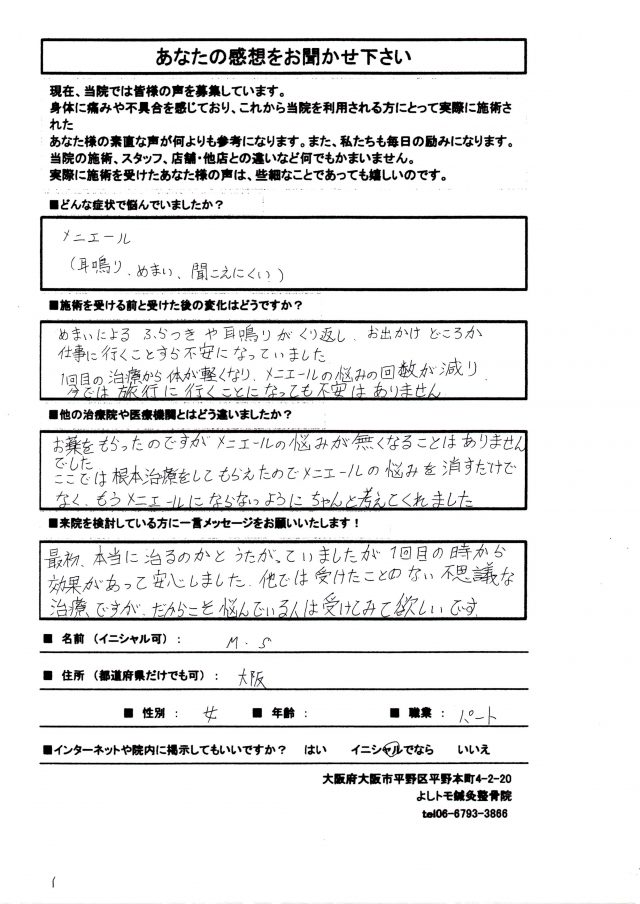 あなたの感想をお聞かせ下さい
現在、当院では皆様の声を募集しています。
身体に痛みや不具合を感じており、これから当院を利用される方にとって実際に施術さ
れた
あなた様の素直な声が何よりも参考になります。また、私たちも毎日の励みになります。
当院の施術、スタッフ、店舗・他店との違いなど何でもかまいません。
実際に施術を受けたあなた様の声は、些細なことであっても嬉しいのです。
■どんな症状で悩んでいましたか？
メニエール
(耳鳴り、めまい、聞こえにくい)
■施術を受ける前と受けた後の変化はどうですか？
めまいによる ふらつきや耳鳴りがくり返し、お出かけどころか
仕事に行くことすら不安になっていました
1回目の治療から体が軽くなり、メニエールの悩みの回数が減り、
今では旅行に行くことになっても不安はありません
■他の治療院や医療機関とはどう違いましたか？
お薬をもらったのですがメニエールの悩みが無くなることはありません
でした
ここでは根本治療をしてもらえたのでメニエールの悩みを消すだけで
なく、もうメニエールにならないようにちゃんと考えてくれました
■来院を検討している方に一言メッセージをお願いいたします！
最初、本当に治るのかとうたがっていましたが1回目の時から
効果があって安心しました。他では受けたことのない不思議な
治療、ですが、だからこそ悩んでいる人は受けてみて欲しいです。
■ 名前（イニシャル可）： M.S
■ 住所（都道府県だけでも可）： 大阪
■ 性別： 女 ■ 年齢： ■ 職業： パート
■インターネットや院内に掲示してもいいですか？ はい イニシャルでなら いいえ
大阪府大阪市平野区平野本町4-2-20
よしトモ鍼灸整骨院
tel06-6793-3866